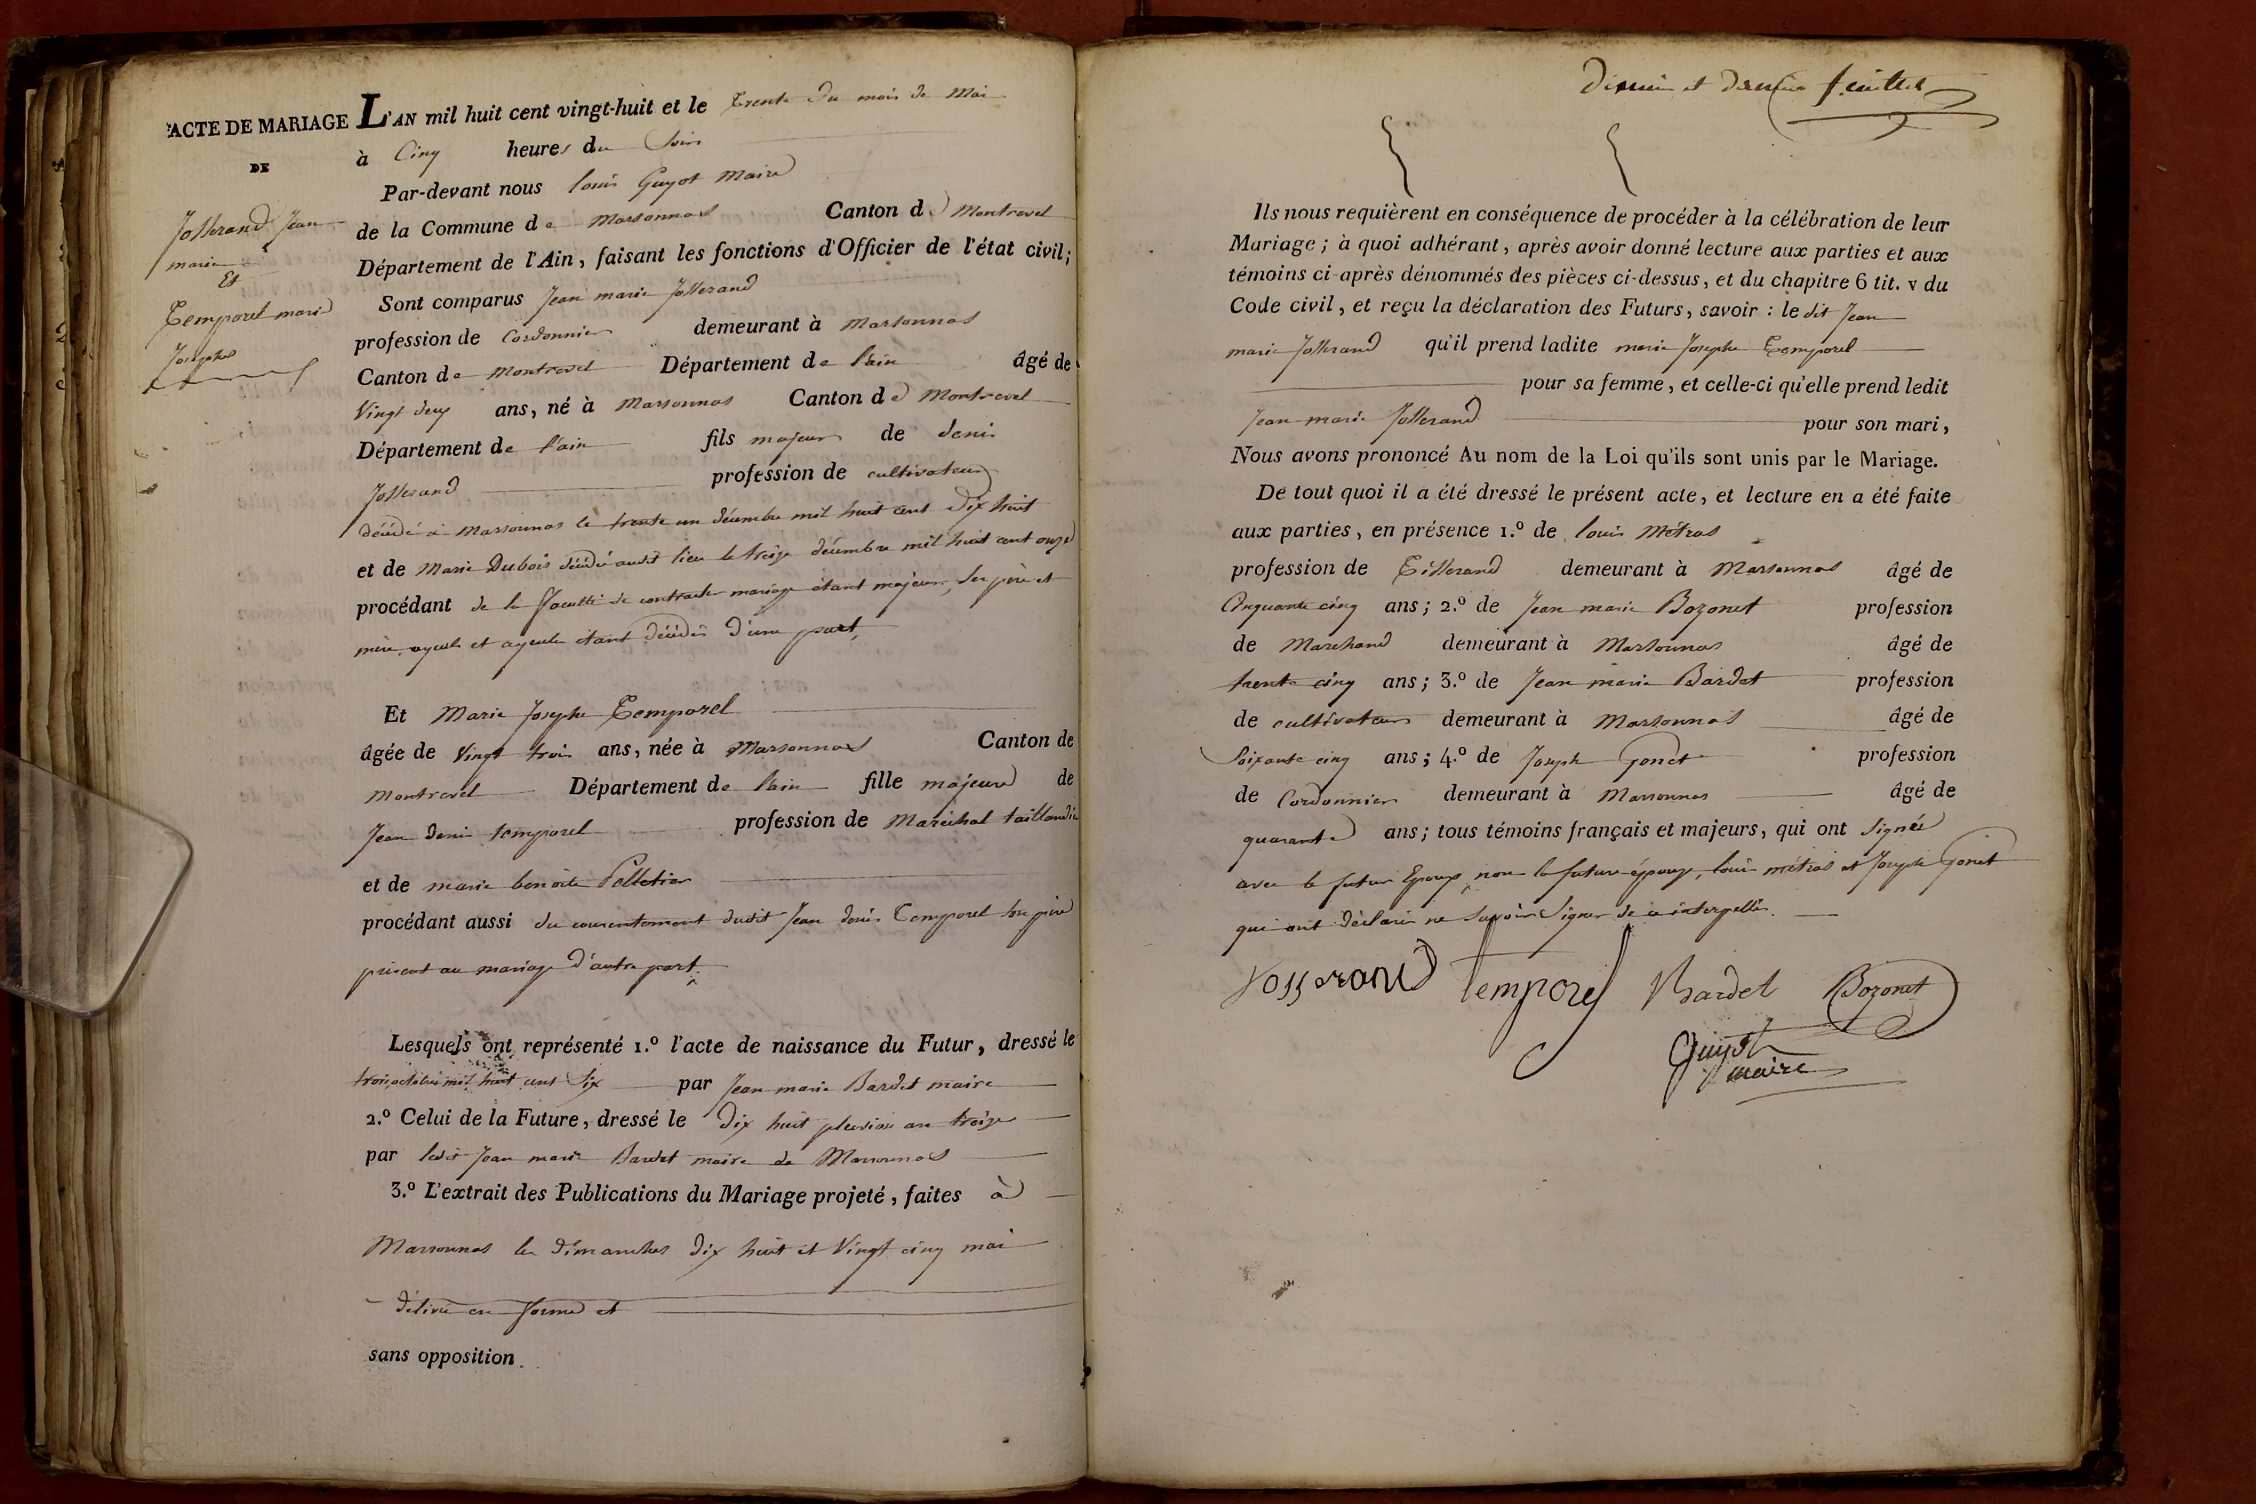 ACTE DE MARIAGE
DE
Josserand Jean
marie
Et
Temporel marie
Josephe
L'AN mil huit cent vingt-huit et le trente du mois de Mai
à Cinq heures du Soir
Par-devant nous louis Guyot Maire
de la Commune de Marsonnas Canton de Montrevel
Département de l'Ain, faisant les fonctions d'Officier de l'état civil;
Sont comparus Jean marie Josserand
profession de Cordonnier demeurant à Marsonnas
Canton de Montrevel Département de l'ain âgé de
Vingt deux ans, né à Marsonnas Canton de Montrevel
Département de l'ain fils majeur de denis
Josserand profession de cultivateur
décédé à Marsonnas le trente un décembre mil huit cent dix huit
et de Marie Dubois décédé audit lieu le treize décembre mil huit cent onze
procédant de la faculté de contracter mariage étant majeur, ses père et
mère, ayeuls et ayeules étant décédés d'une part,
Et Marie Josephe Temporel
âgée de Vingt trois ans, née à Marsonnas Canton de
Montrevel Département de l'ain fille majeure de
Jean denis temporel profession de Maréchal taillandier
et de marie benoite Pelletier
procédant aussi du consentement dudit Jean denis Temporel son père
présent au mariage d'autre part.
Lesquels ont représenté 1.º l'acte de naissance du Futur, dressé le
trois octobre mil huit cent Six par Jean marie Bardet maire
2.º Celui de la Future, dressé le dix huit pluviose an treize
par ledit Jean marie Bardet maire de Marsonnas
3.º L'extrait des Publications du Mariage projeté, faites à
Marsonnas les dimanches dix huit et Vingt cinq mai
délivré en forme et
sans opposition.
dixième et dernier feuillet
Ils nous requièrent en conséquence de procéder à la célébration de leur
Mariage; à quoi adhérant, après avoir donné lecture aux parties et aux
témoins ci-après dénommés des pièces ci-dessus, et du chapitre 6 tit. v du
Code civil, et reçu la déclaration des Futurs, savoir : le dit Jean
marie Josserand qu'il prend ladite marie Josephe Temporel
pour sa femme, et celle-ci qu'elle prend ledit
Jean marie Josserand pour son mari,
Nous avons prononcé Au nom de la Loi qu'ils sont unis par le Mariage.
De tout quoi il a été dressé le présent acte, et lecture en a été faite
aux parties, en présence 1.º de louis Métras
profession de Tisserand demeurant à Marsonnas âgé de
Cinquante cinq ans; 2.º de Jean marie Bozonet profession
de Marchand demeurant à Marsonnas âgé de
trente cinq ans; 3.º de Jean marie Bardet profession
de cultivateur demeurant à Marsonnas âgé de
Soixante cinq ans; 4.º de Joseph Gonet profession
de Cordonnier demeurant à Marsonnas âgé de
quarante ans; tous témoins français et majeurs, qui ont signés
avec le futur Epoux, non la future épouse, louis métras et Joseph Gonet
qui ont déclaré ne savoir Signer de ce interpellés.
Josserand Temporel Bardet Bozonet
Guyot
maire